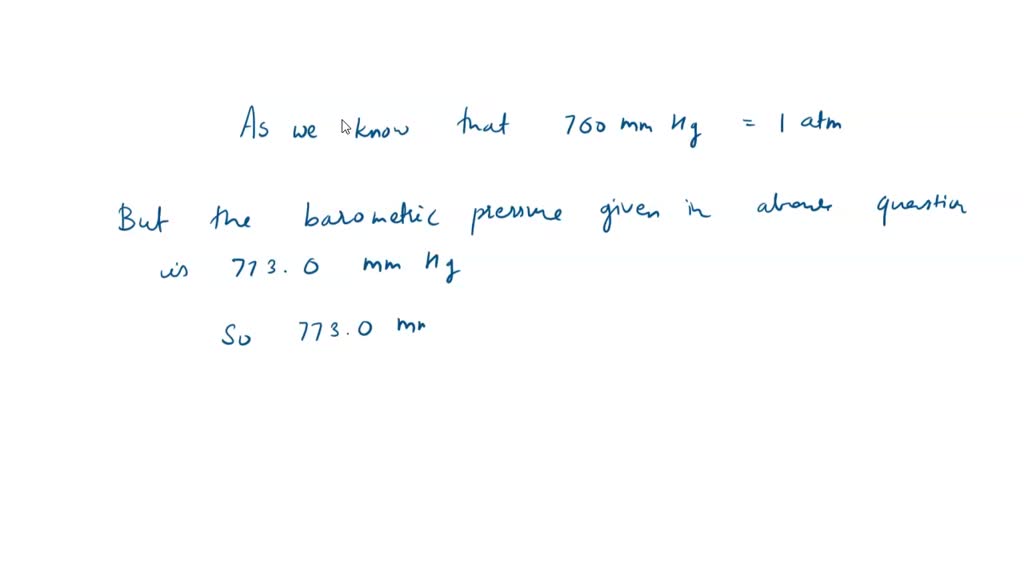 As we know that 760 mm Hg = 1 atm
But the barometric pressure given in above question
is 773.0 mm Hg
So 773.0 mm